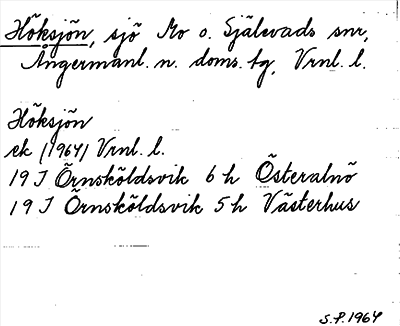 Höksjön, sjö Mo o. Själevads snr,
Ångermanl. n. doms. tg, Vrnl. l.
Höksjön
ek (1964) Vrnl. l.
19 J Örnsköldsvik 6 h Österalnö
19 J Örnsköldsvik 5 h Västerhus
S.P. 1964